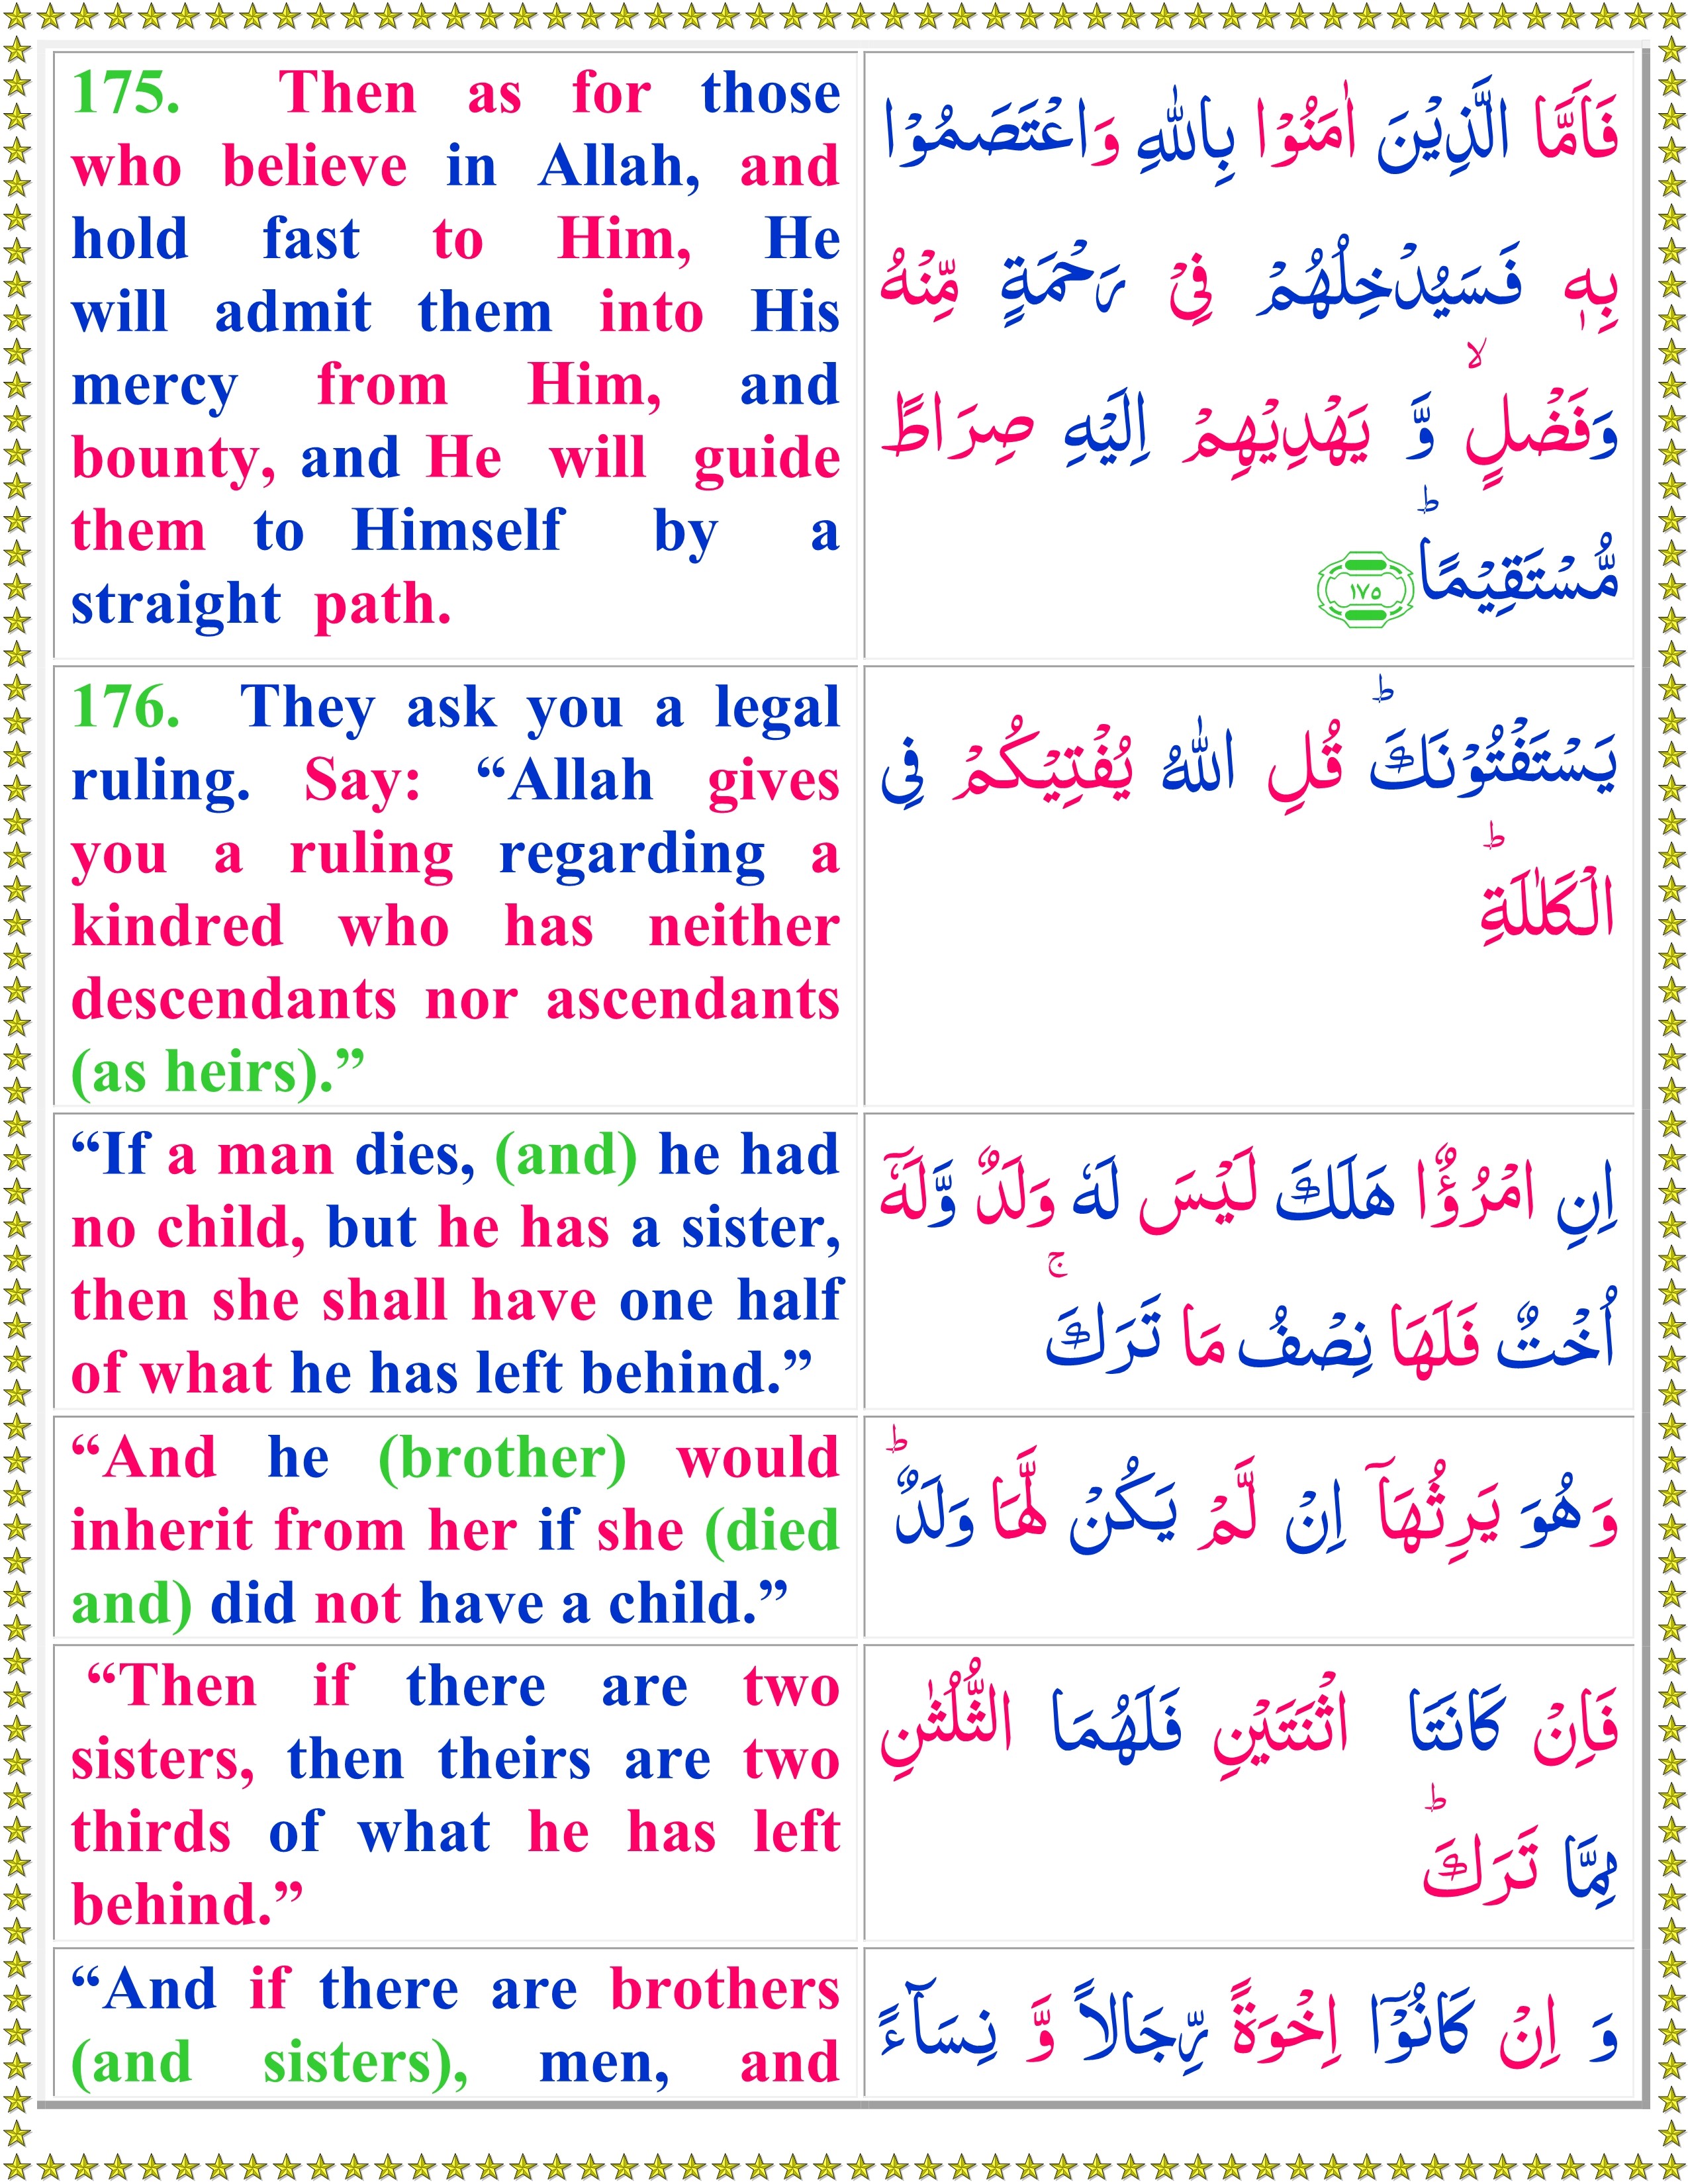 175. Then as for those
who believe in Allah, and
hold fast to Him, He
will admit them into His
mercy from Him, and
bounty, and He will guide
them to Himself by a
straight path.
فَاَمَّا الَّذِيْنَ اٰمَنُوْا بِاللّٰهِ وَاعْتَصَمُوْا
بِهٖ فَسَيُدْخِلُهُمْ فِىْ رَحْمَةٍ مِّنْهُ
وَفَضْلٍۙ وَّ يَهْدِيْهِمْ اِلَيْهِ صِرَاطًا
مُّسْتَقِيْمًاؕ ۱۷۵
176. They ask you a legal
ruling. Say: “Allah gives
you a ruling regarding a
kindred who has neither
descendants nor ascendants
(as heirs).”
يَسْتَفْتُوْنَكَؕ قُلِ اللّٰهُ يُفْتِيْكُمْ فِى
الْكَلٰلَةِؕ
“If a man dies, (and) he had
no child, but he has a sister,
then she shall have one half
of what he has left behind.”
اِنِ امْرُؤٌا هَلَكَ لَيْسَ لَهٗ وَلَدٌ وَّلَهٗۤ
اُخْتٌ فَلَهَا نِصْفُ مَا تَرَكَۚ
“And he (brother) would
inherit from her if she (died
and) did not have a child.”
وَهُوَ يَرِثُهَاۤ اِنْ لَّمْ يَكُنْ لَّهَا وَلَدٌؕ
“Then if there are two
sisters, then theirs are two
thirds of what he has left
behind.”
فَاِنْ كَانَتَا اثْنَتَيْنِ فَلَهُمَا الثُّلُثٰنِ
مِمَّا تَرَكَؕ
“And if there are brothers
(and sisters), men, and
وَ اِنْ كَانُوْۤا اِخْوَةً رِّجَالًا وَّ نِسَآءً